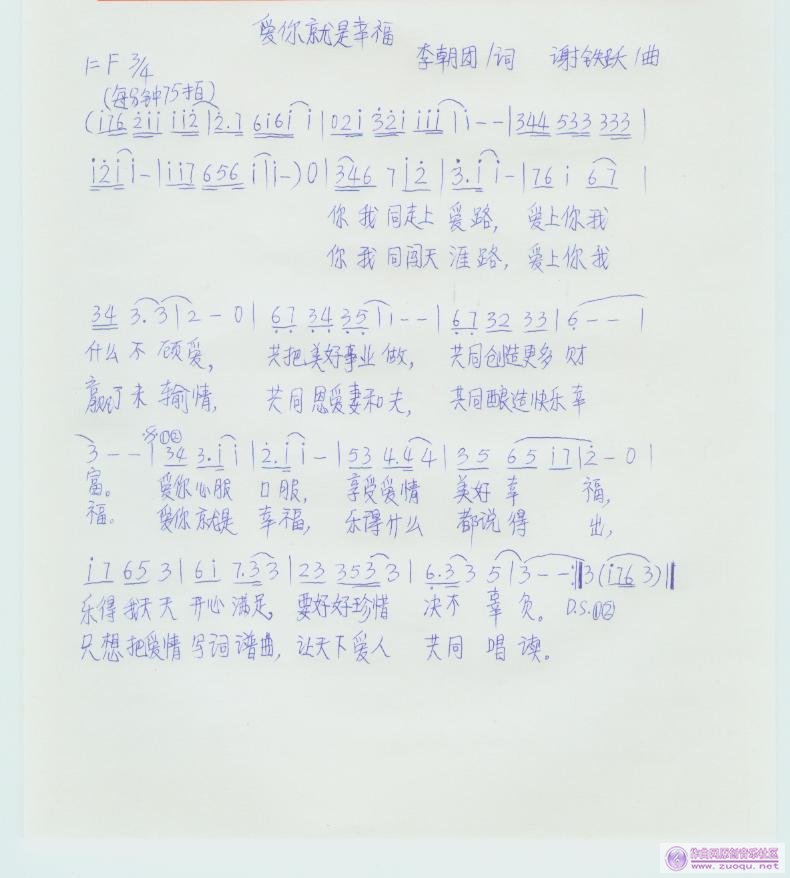 爱你就是幸福
1=F 3/4 李朝团/词 谢铁跃/曲
(每分钟75拍)
(i76 2ii ii2|2.7 6i6i i|02i 32i iii|i--|344 533 333|
i2i i-|ii7 656 i|i-)0|346 7 i2|3.i i-|76 i 67|
你我同走上爱路, 爱上你我
你我同闯天涯路, 爱上你我
34 3.3|2-0|67 34 35|i--|67 32 33|6--|
什么不顾爱, 共把美好事业做, 共同创造更多财
赢了未输情, 共同恩爱妻和夫, 共同酿造快乐幸
3--|34 3.i i|2.i i-|53 4.4 4|35 65 i7|2-0|
富。 爱你心服口服, 享受爱情 美好幸 福,
福。 爱你就是幸福, 乐得什么 都说得 出,
i7 65 3|6i 7.3 3|23 353 3|6.3 3 5|3--:‖3(i76 3)‖
乐得我天天开心满足, 要好好珍惜 决不 辜 负。 D.S.①②
只想把爱情写词谱曲, 让天下爱人 共同 唱 读。
作曲网原创音乐社区
www.zuoqu.net